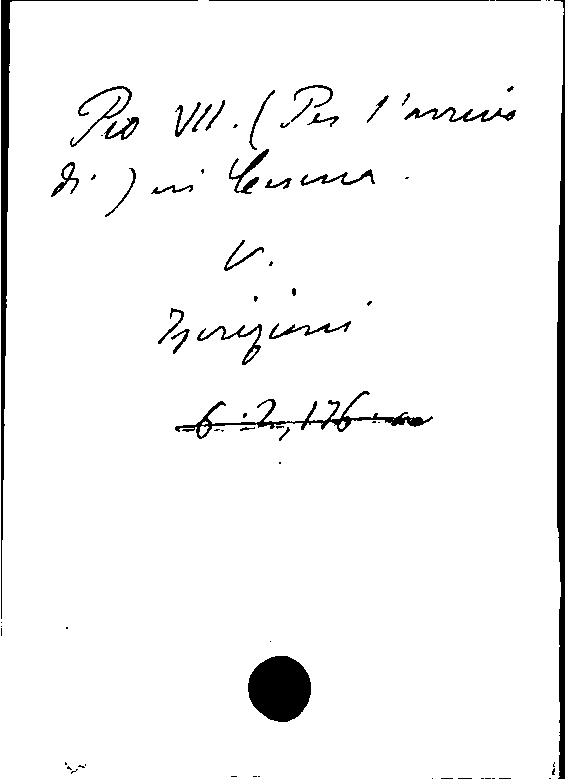 Pio VII. (Per l'arrivo
di) in Cesena.
V.
Iscrizioni
6.2,176.